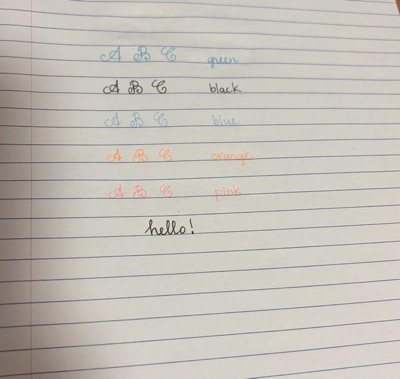 A B C green
A B C black
A B C blue
A B C orange
A B C pink
hello!